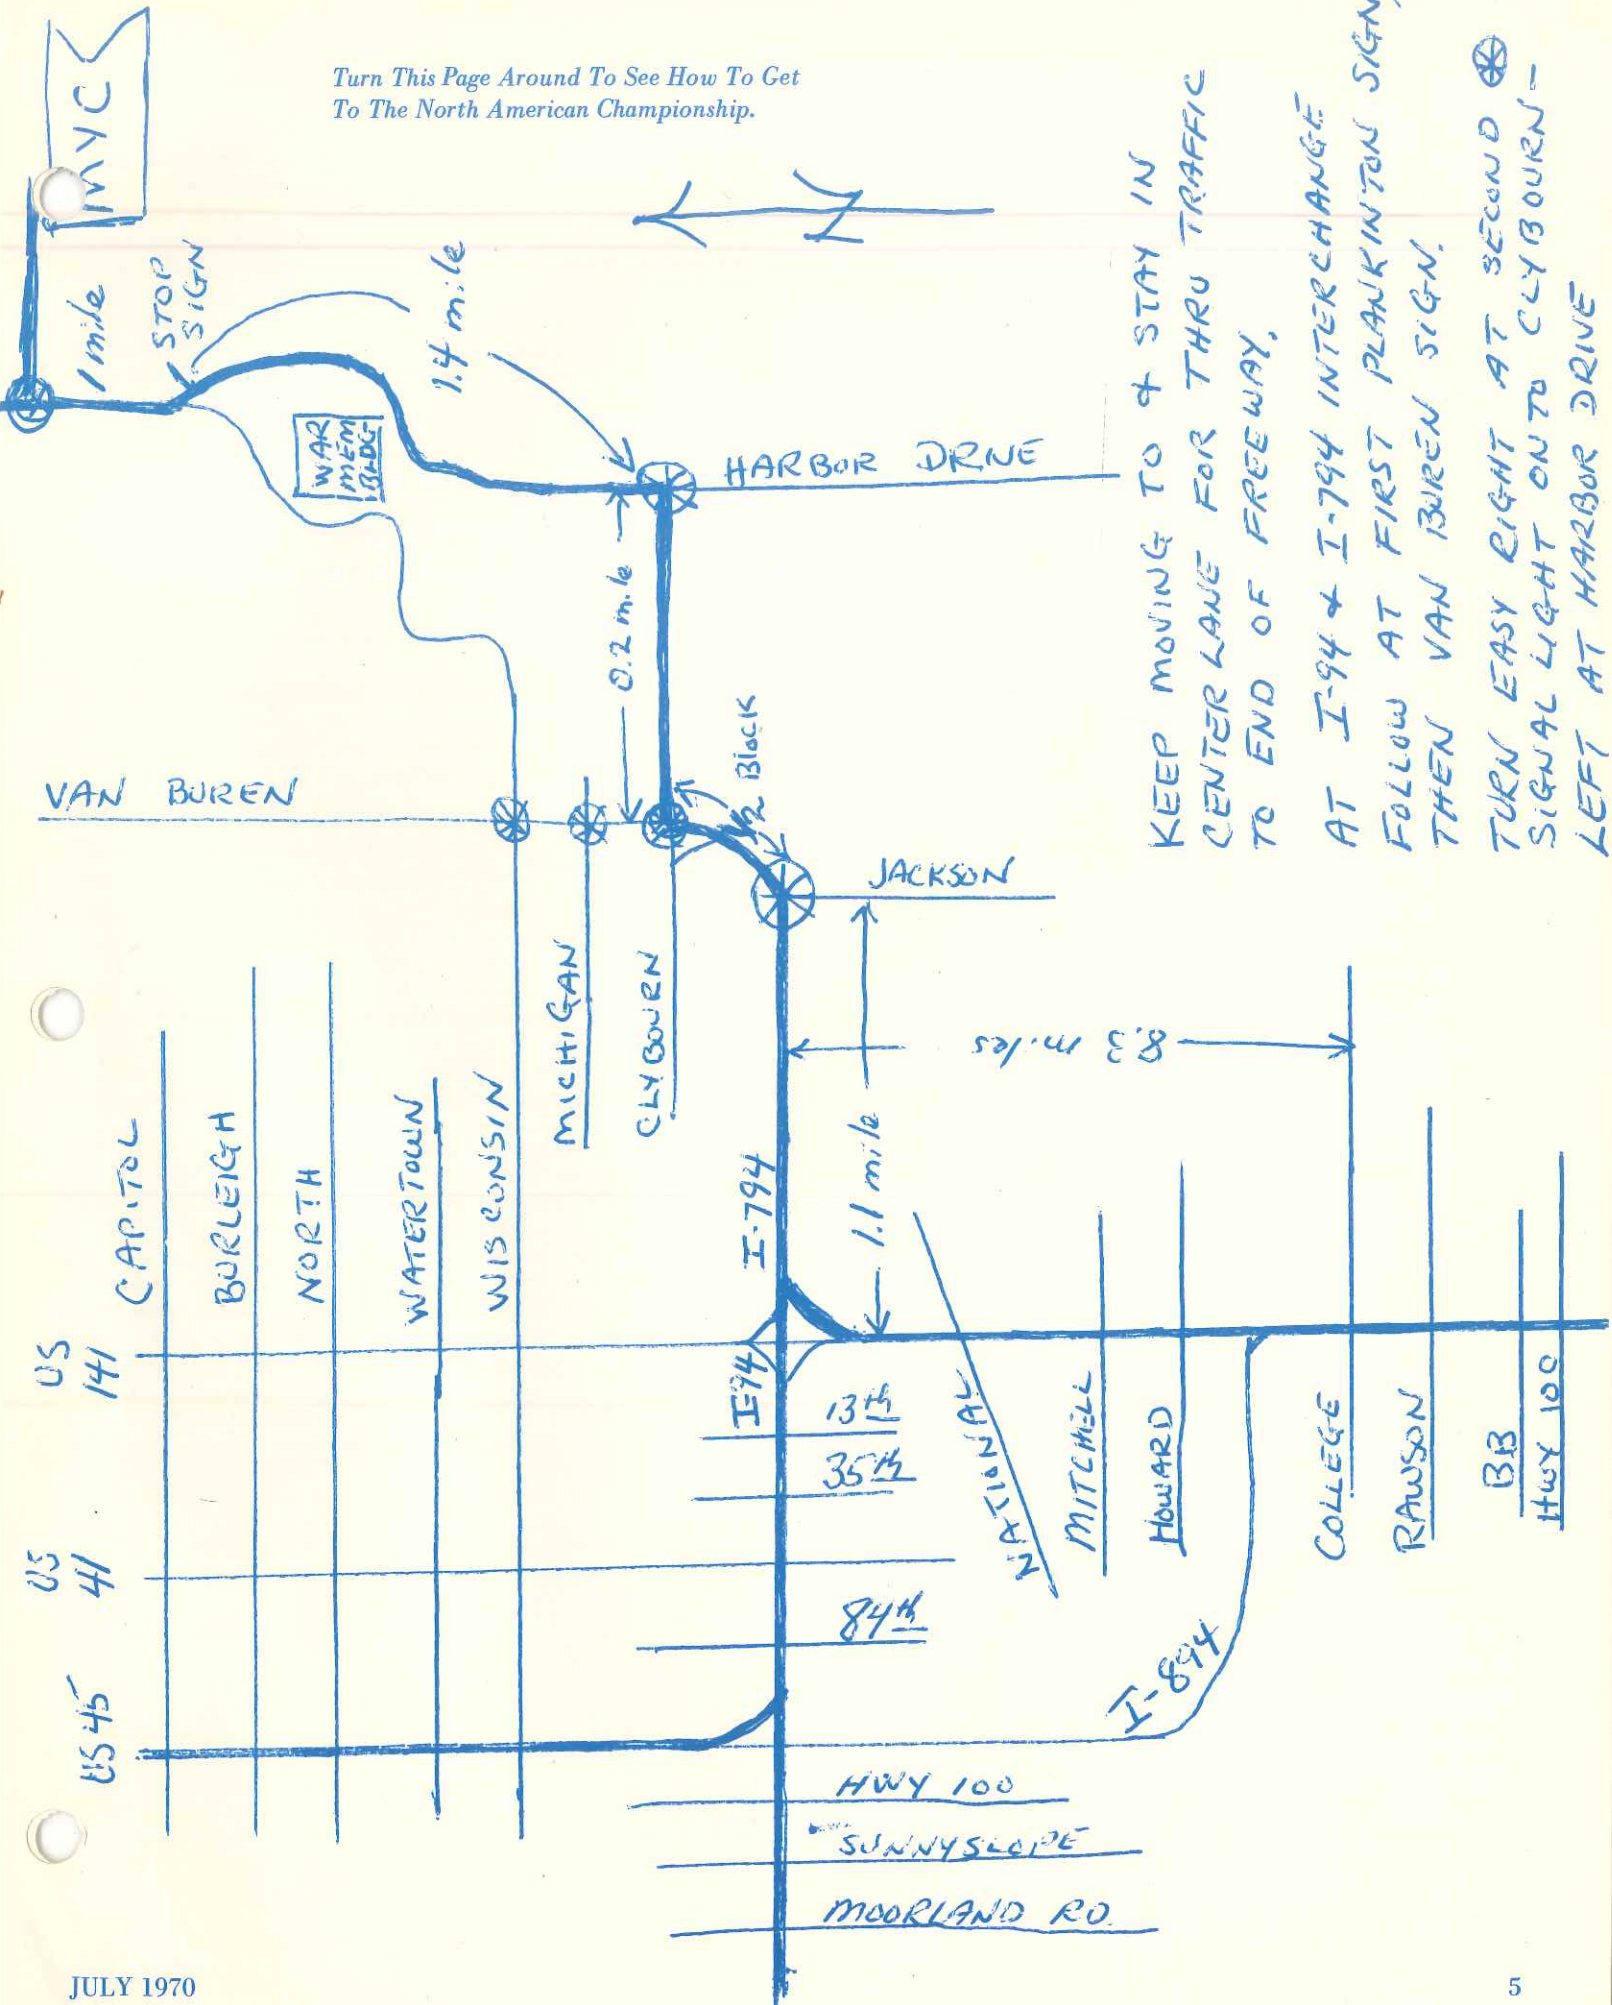 Turn This Page Around To See How To Get
To The North American Championship.
MYC
1 mile
STOP
SIGN
1.4 mile
WAR
MEM
BLDG
HARBOR DRIVE
0.2 mile
1/2 Block
VAN BUREN
JACKSON
MICHIGAN
CLYBOURN
8.3 miles
1.1 mile
CAPITOL
BURLEIGH
NORTH
WATERTOWN
WISCONSIN
I-794
US
141
I-94
13th
35th
NATIONAL
MITCHELL
HOWARD
COLLEGE
RAWSON
BB
HWY 100
US
41
84th
I-894
US 45
HWY 100
SUNNYSLOPE
MOORLAND RD.
N
KEEP MOVING TO & STAY IN
CENTER LANE FOR THRU TRAFFIC
TO END OF FREEWAY.
AT I-94 & I-794 INTERCHANGE
FOLLOW AT FIRST PLANKINTON SIGN,
THEN VAN BUREN SIGN.
TURN EASY RIGHT AT SECOND
SIGNAL LIGHT ONTO CLYBOURN-
LEFT AT HARBOR DRIVE
JULY 1970
5